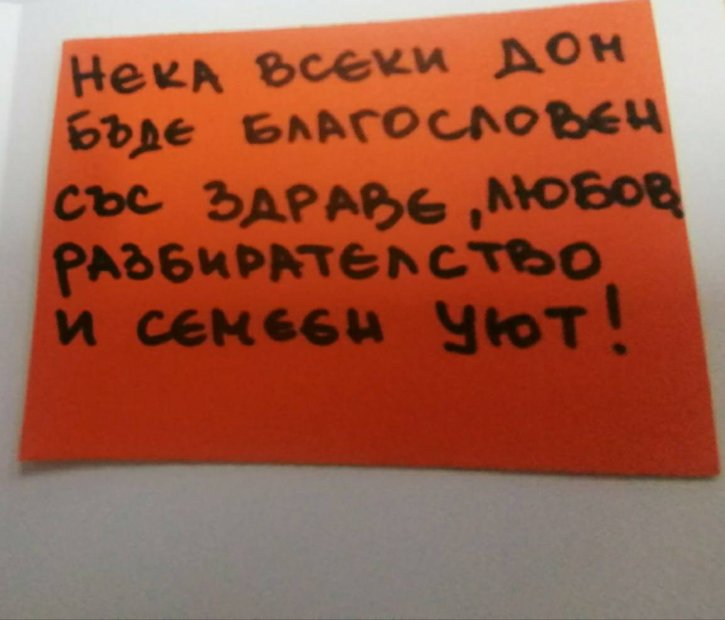 НЕКА ВСЕКИ ДОМ
БЪДЕ БЛАГОСЛОВЕН
СЪС ЗДРАВЕ, ЛЮБОВ,
РАЗБИРАТЕЛСТВО
И СЕМЕЕН УЮТ!